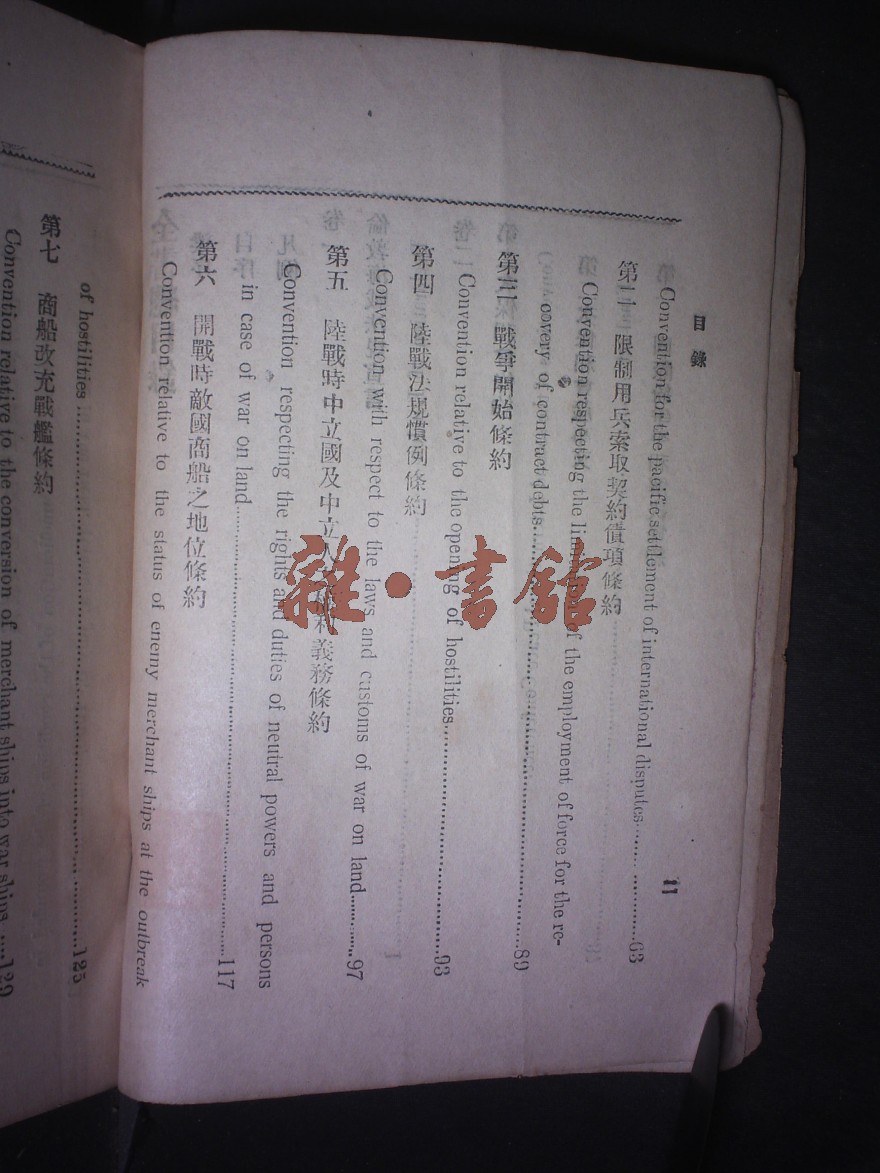 目錄
Convention for the pacific settlement of international disputes……63
第二 限制用兵索取契約債項條約
Convention respecting the limitation of the employment of force for the re-
covery of contract debts……89
第三 戰爭開始條約
Convention relative to the opening of hostilities……93
第四 陸戰法規慣例條約
Convention with respect to the laws and customs of war on land……97
第五 陸戰時中立國及中立人之權利義務條約
Convention respecting the rights and duties of neutral powers and persons
in case of war on land……117
第六 開戰時敵國商船之地位條約
Convention relative to the status of enemy merchant ships at the outbreak
of hostilities……125
第七 商船改充戰艦條約
Convention relative to the conversion of merchant ships into war ships……129
雜·書館